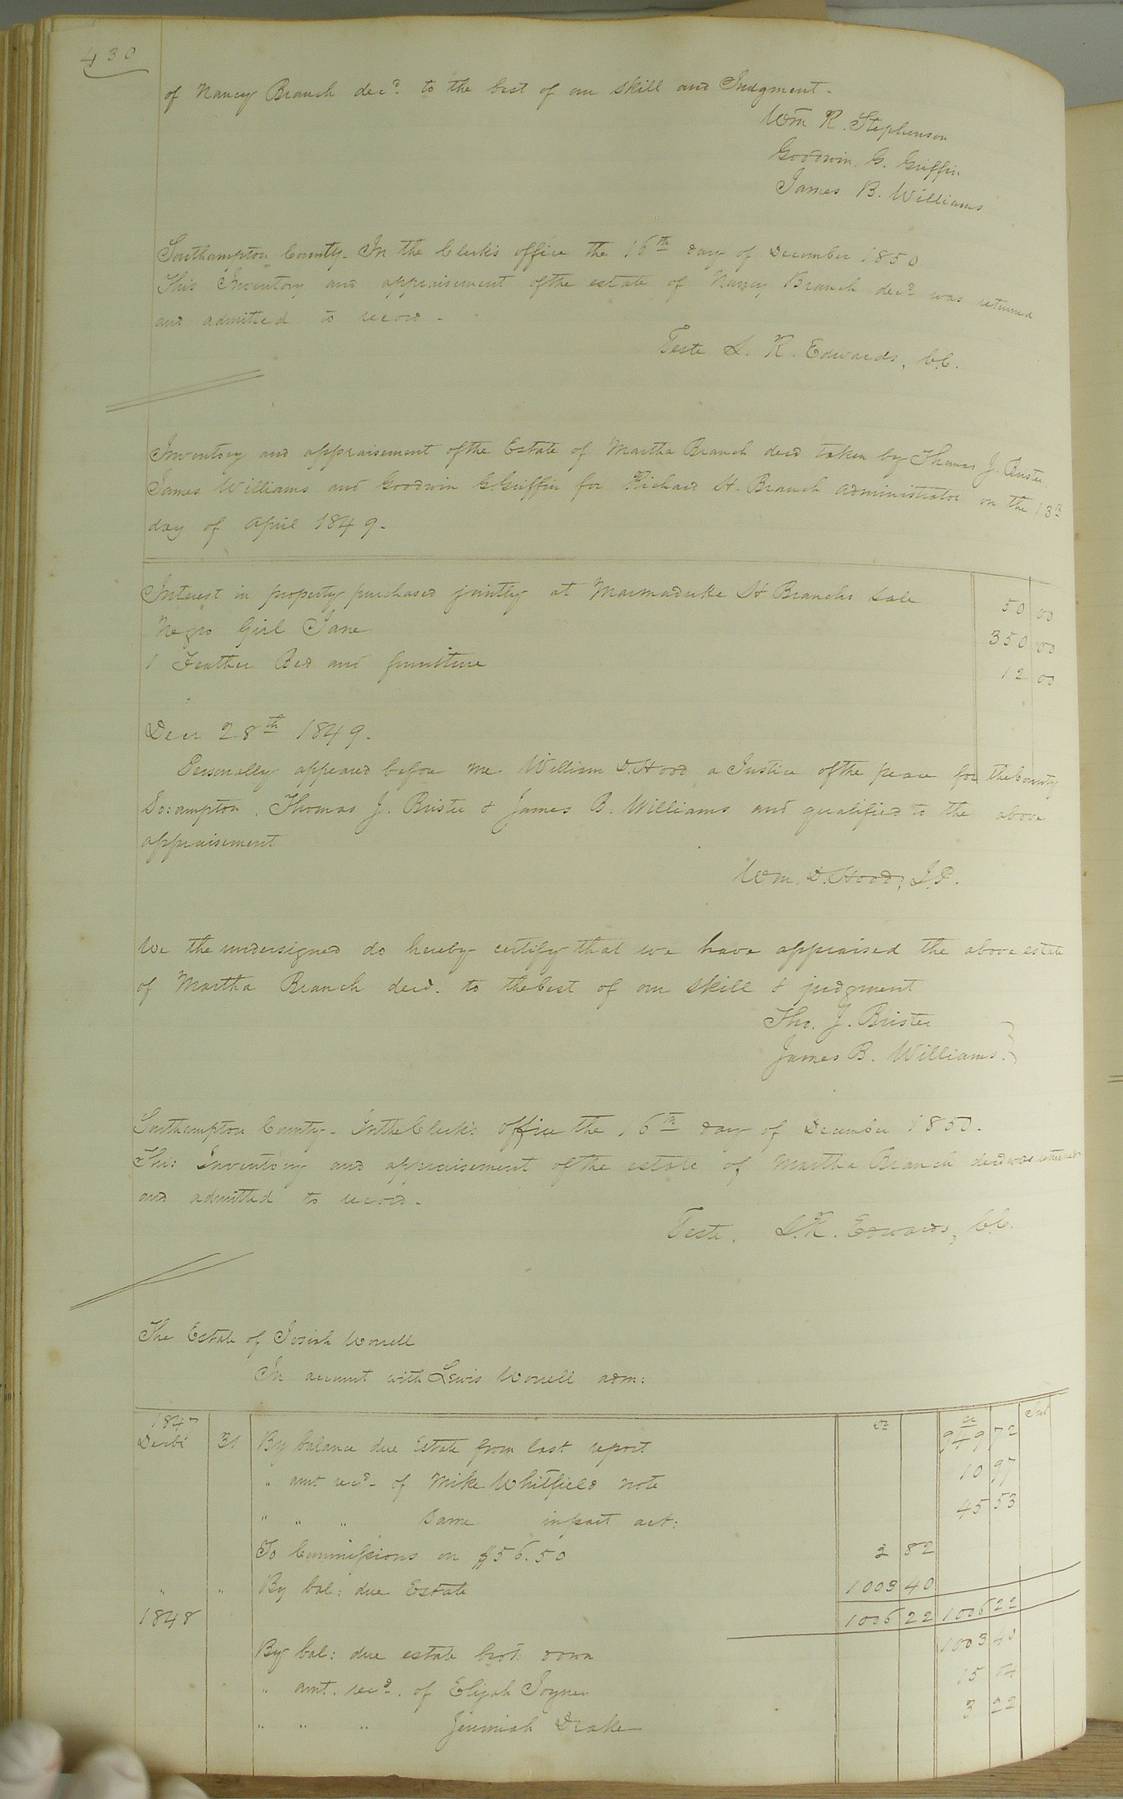 430
of Nancy Branch decd to the best of our skill and Judgment.
Wm R. Stephenson
Goodwin G. Griffin
James B. Williams
Southampton County. In the Clerk's office the 16th day of December 1850
This Inventory and appraisement of the estate of Nancy Branch decd was returned
and admitted to record.
Teste L. R. Edwards, C.C.
Inventory and appraisement of the Estate of Martha Branch decd taken by Thomas J. Brister
James Williams and Goodwin G Griffin for Richard H. Branch administrator on the 13th
day of April 1849.
Interest in property purchased jointly at Marmaduke H Branchs Sale 50 00
Negro Girl Jane 350 00
1 Feather Bed and furniture 12 00
Decr 28th 1849.
Personally appeared before me William D. Hood a Justice of the peace for the County
Soampton. Thomas J. Brister & James B. Williams and qualified to the above
appraisement
Wm. D. Hood, J.P.
We the undersigned do hereby certify that we have appraised the above estate
of Martha Branch decd. to the best of our skill & judgment
Tho. J. Brister
James B. Williams.
Southampton County. In the Clerk's office the 16th day of December 1850.
This Inventory and appraisement of the estate of Martha Branch decd was returned
and admitted to record.
Teste. L. R. Edwards, C.C.
The Estate of Josiah Worrell
In account with Lewis Worrell adm:
1847 Dr Cr
31 By balance due Estate from last report 949 72
" amt recd. of Mike Whitfield note 10 97
" " " Same in part act: 45 53
To Commissions on $56.50 2 82
" " By bal: due Estate 1003 40
1848 1006 22 1006 22
By bal: due estate brot down 1003 40
" amt. recd. of Elijah Joyner 15
" " " Jeremiah Drake 3 22